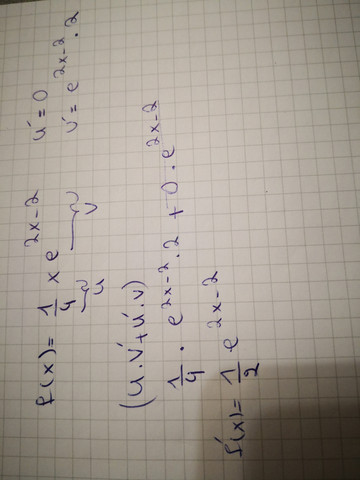 f(x) = 1/4 x e^{2x-2}   u' = 0
u   v   v' = e^{2x-2} · 2
(u · v' + u' · v)
1/4 · e^{2x-2} · 2 + 0 · e^{2x-2}
f'(x) = 1/2 e^{2x-2}